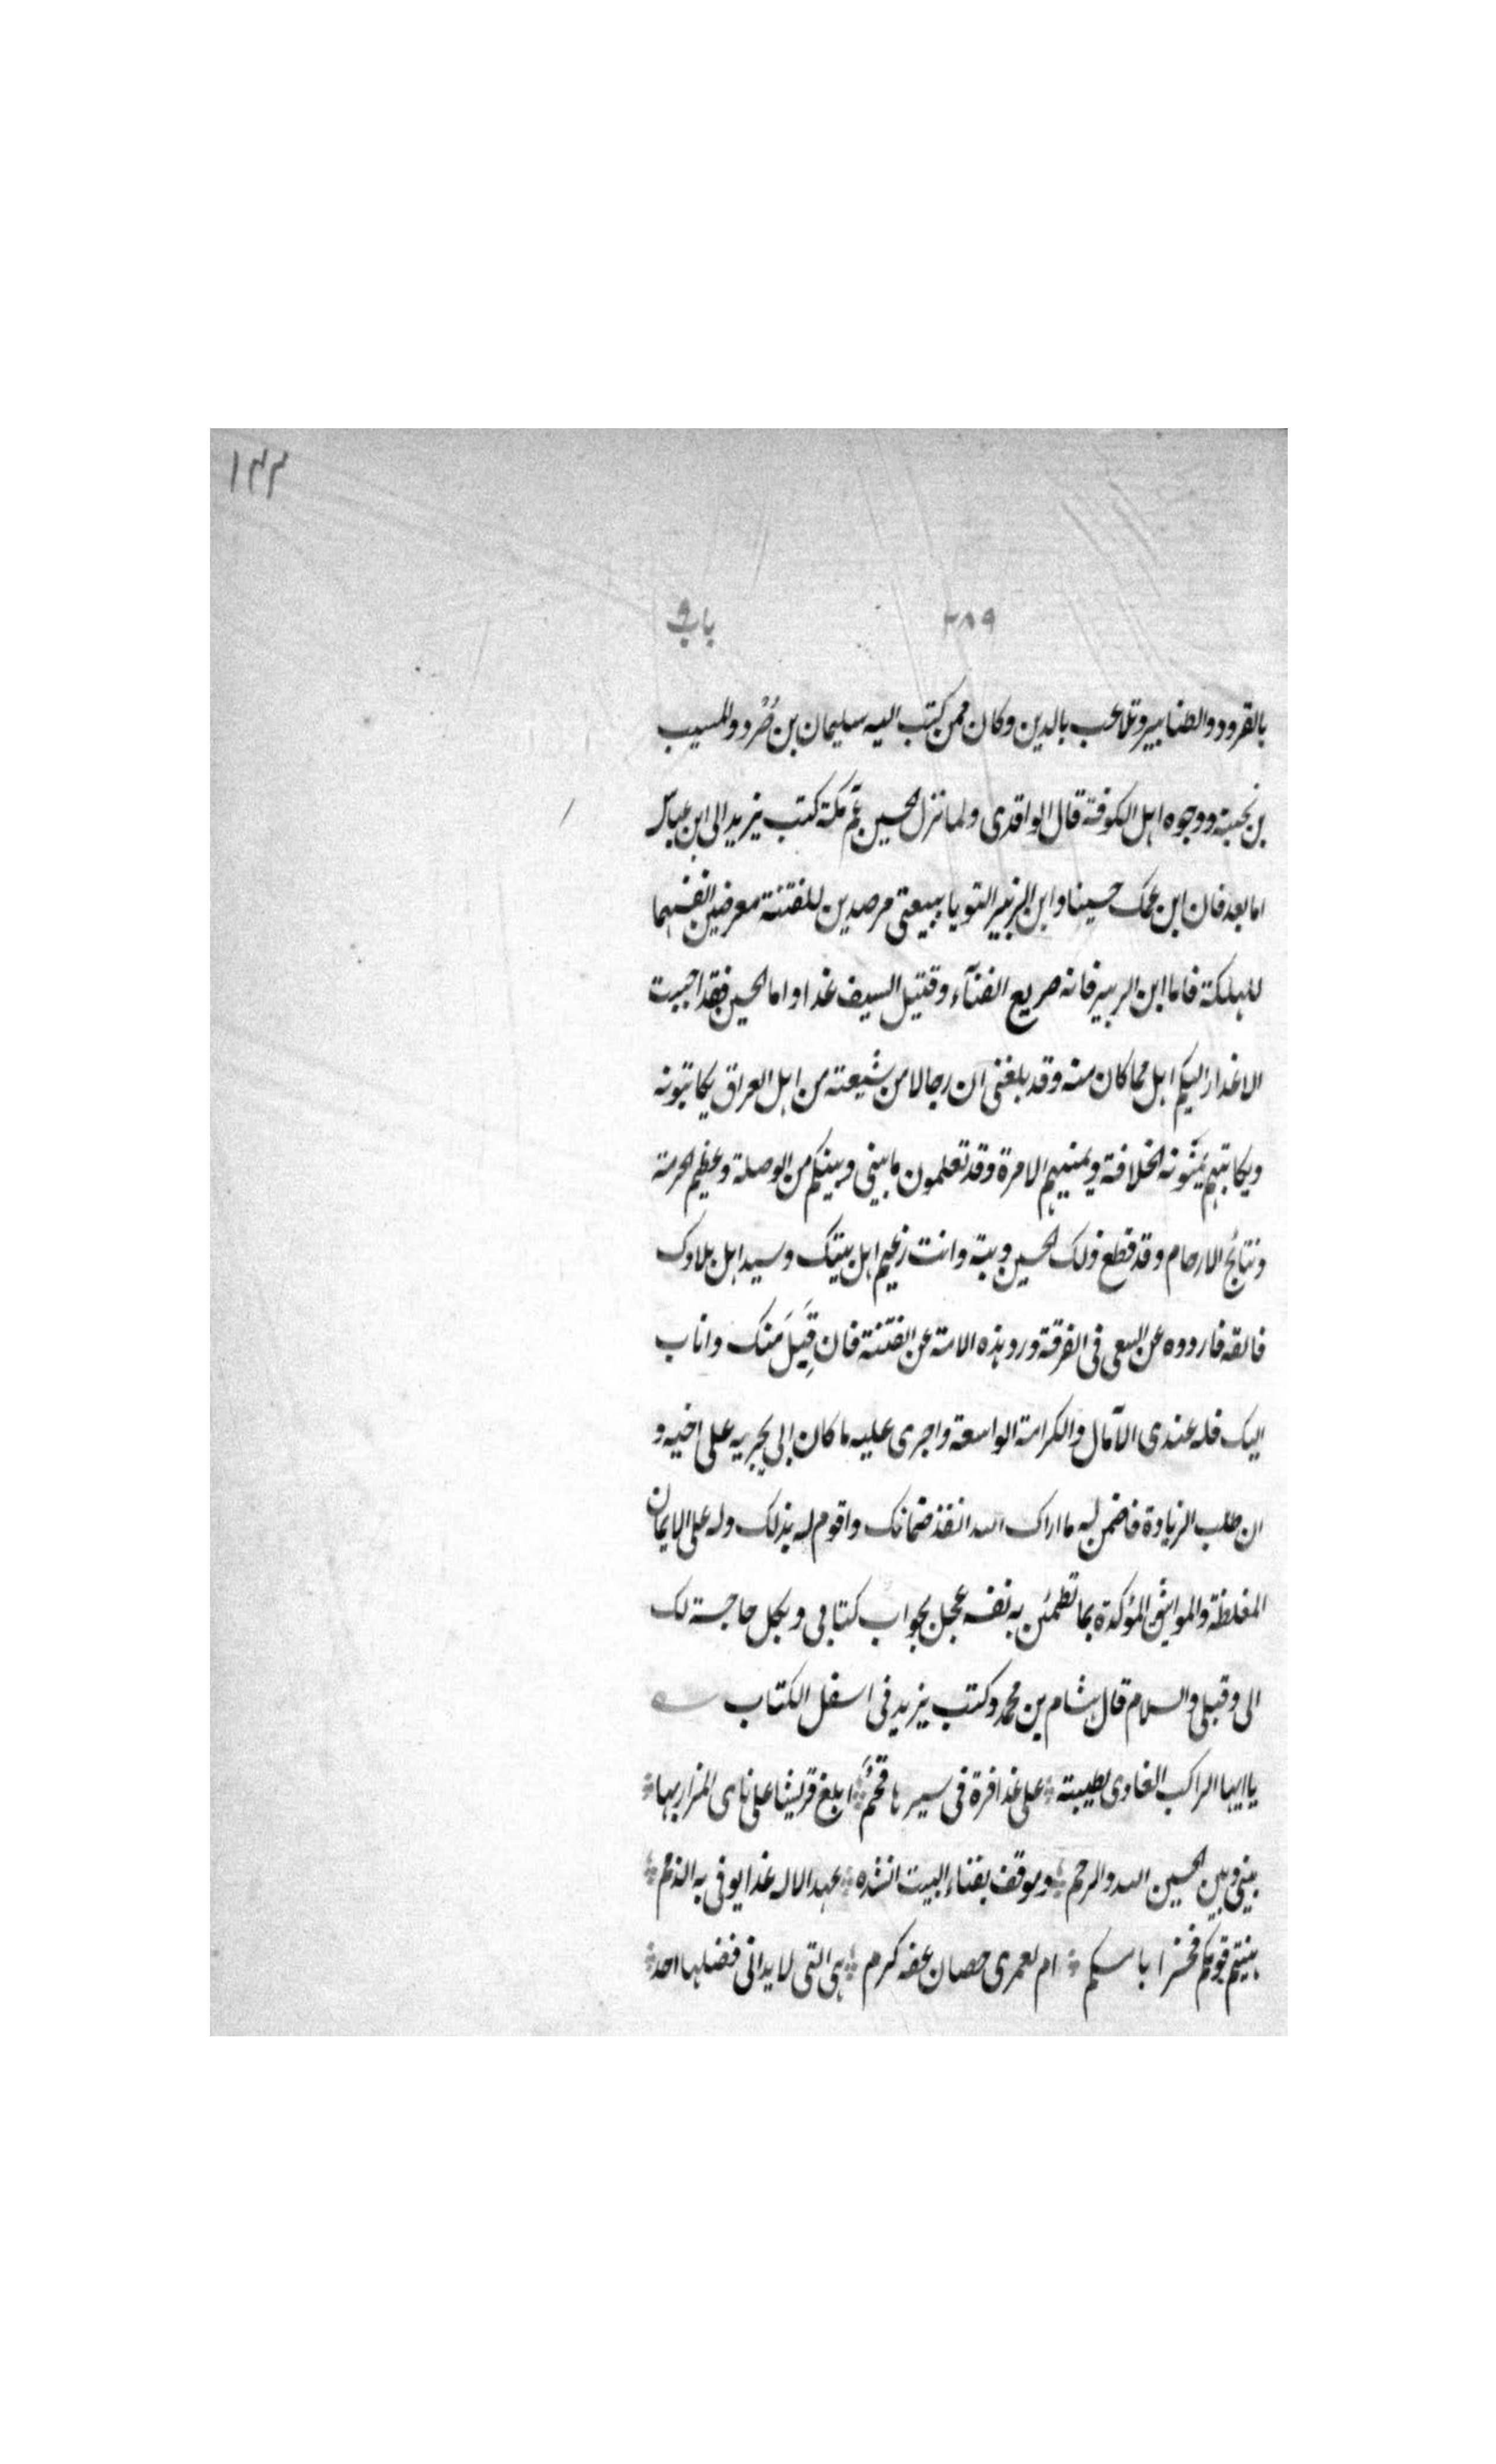 ١٤٤
٢٨٩ باب ٩
بالقرود والطنابير وتلاعب بالدين وكان ممن كتب اليه سليمان بن صُرَد والمسيب
بن نجبة ووجوه اهل الكوفة قال الواقدى ولما نزل الحسين ع م مكة كتب يزيد الى ابن عباس
اما بعد فان ابن عمك حسينا وابن الزبير التويا ببيعتى مرصدين للفتنة معرضين انفسهما
للهلكة فاما ابن الزبير فانه صريع الفنآء وقتيل السيف غدا واما الحسين فقد احببت
الاغدار اليكم اهل مما كان منه وقد بلغنى ان رجالا من شيعته من اهل العراق يكاتبونه
ويكاتبهم يُمَنُّونه الخلافة ويمنيهم الامرة وقد تعلمون ما بينى وبينكم من الوصلة وعظيم الحرمة
ونتائج الارحام وقد قطع ذلك الحسين وبته وانت زعيم اهل بيتك وسيد اهل بلادك
فالقه فاردده عن السعى فى الفرقة ورد هذه الامة عن الفتنة فان قَبِلَ مَنك واناب
اليك فله عندى الآمال والكرامة الواسعة واجرى عليه ما كان ابى يجريه على اخيه و
ان طلب الزيادة فاضمن له ما اراك الله انفذ ضمانك واقوم له بذلك وله على الايمان
المغلظة والمواثيق المؤكدة بما تطمئن به نفسه عجل بجواب كتابى وبكل حاجة لك
الى وقبلى والسلام قال هشام بن محمد وكتب يزيد فى اسفل الكتاب
يا ايها الراكب الغادى لطيبته على غدافرة فى سيرها قحمُ ابلغ قريشا على ناى المزار بها
بينى وبين الحسين الله والرحم وموقف بفناء البيت انشده عهد الاله غدا يوفى به الذمم
هنيتم قومكم فخرا بامكم ام لعمرى حصان عفه كرم هى التى لا يدانى فضلها احد